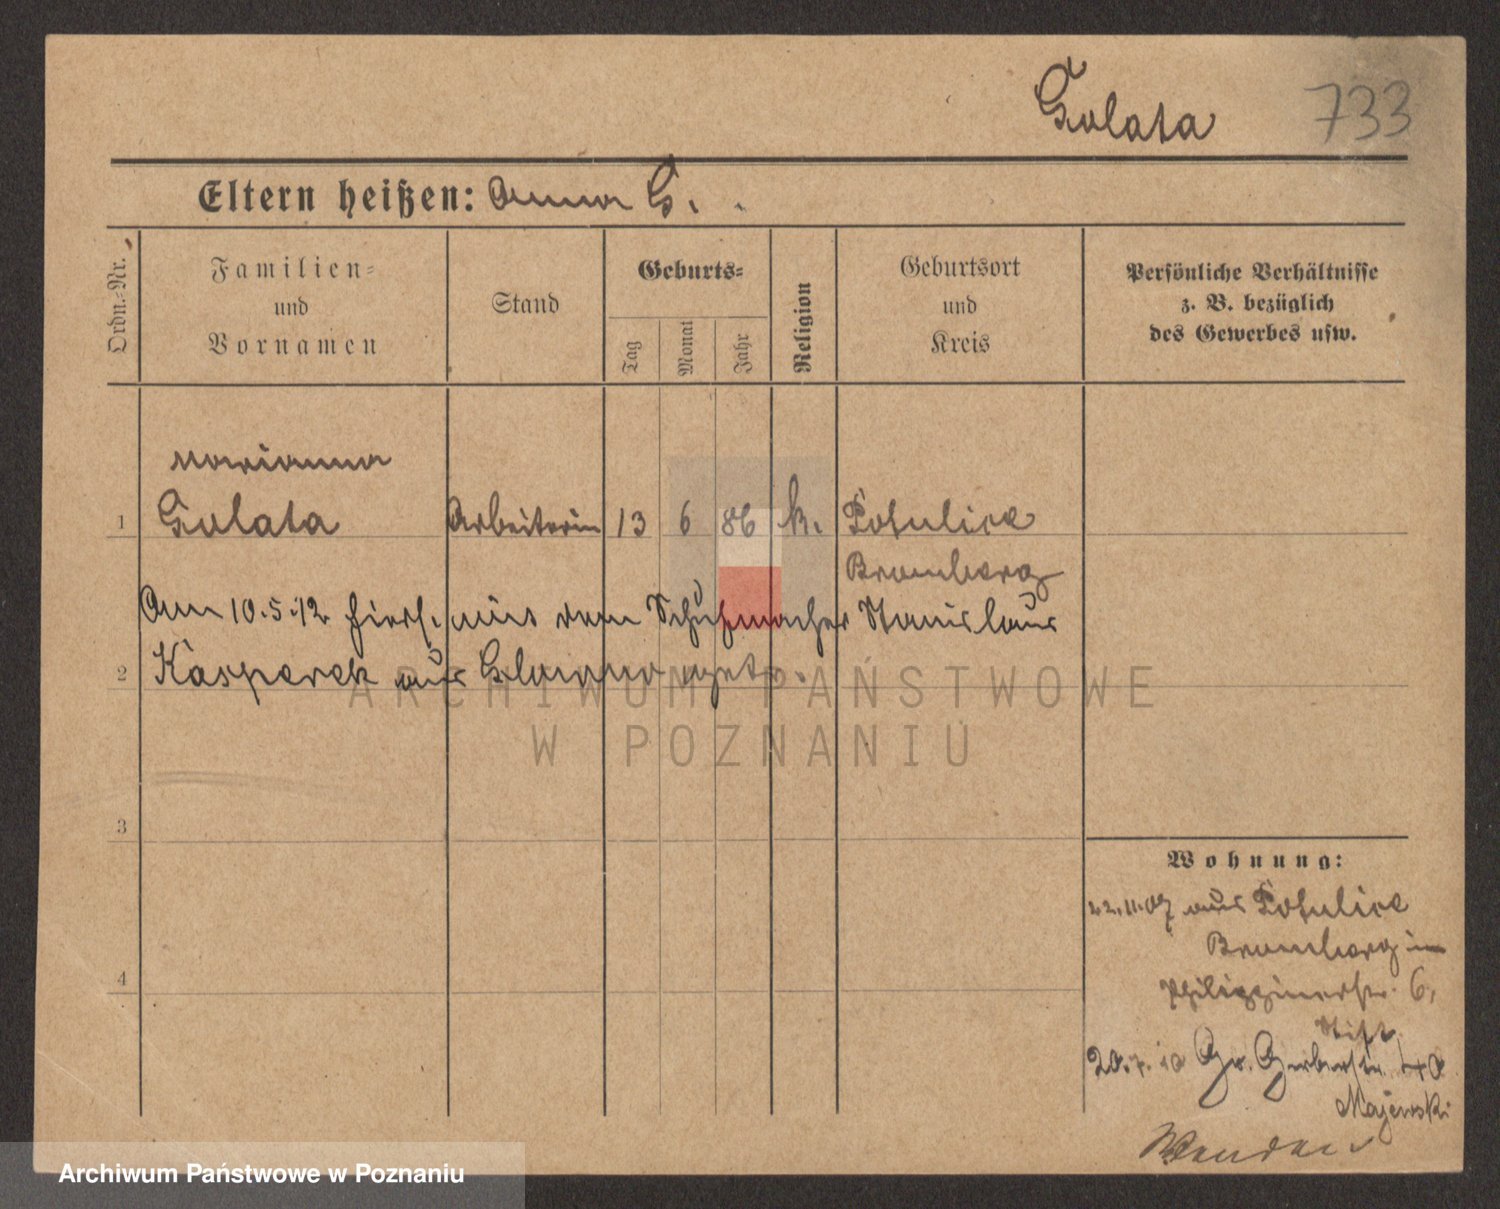 Golata 733
Eltern heißen: Anna G.
Ordn.-Nr.
Familien-
und
Vornamen
Stand
Geburts-
Tag
Monat
Jahr
Religion
Geburtsort
und
Kreis
Persönliche Verhältnisse
z. B. bezüglich
des Gewerbes usw.
Marianna
1 Golata Arbeiterin 13 6 86 k. Potulice
Bromberg
Am 10.5.12 hiers. mit dem Schuhmacher Stanislaus
2 Kasperek aus getr.
3
4
Wohnung:
22.11.07 aus Potulice
Bromberg in
Philippinerstr. 6,
Stift
20. Gr. Gerberstr. 40
Majewski
ARCHIWUM PAŃSTWOWE
W POZNANIU
Archiwum Państwowe w Poznaniu